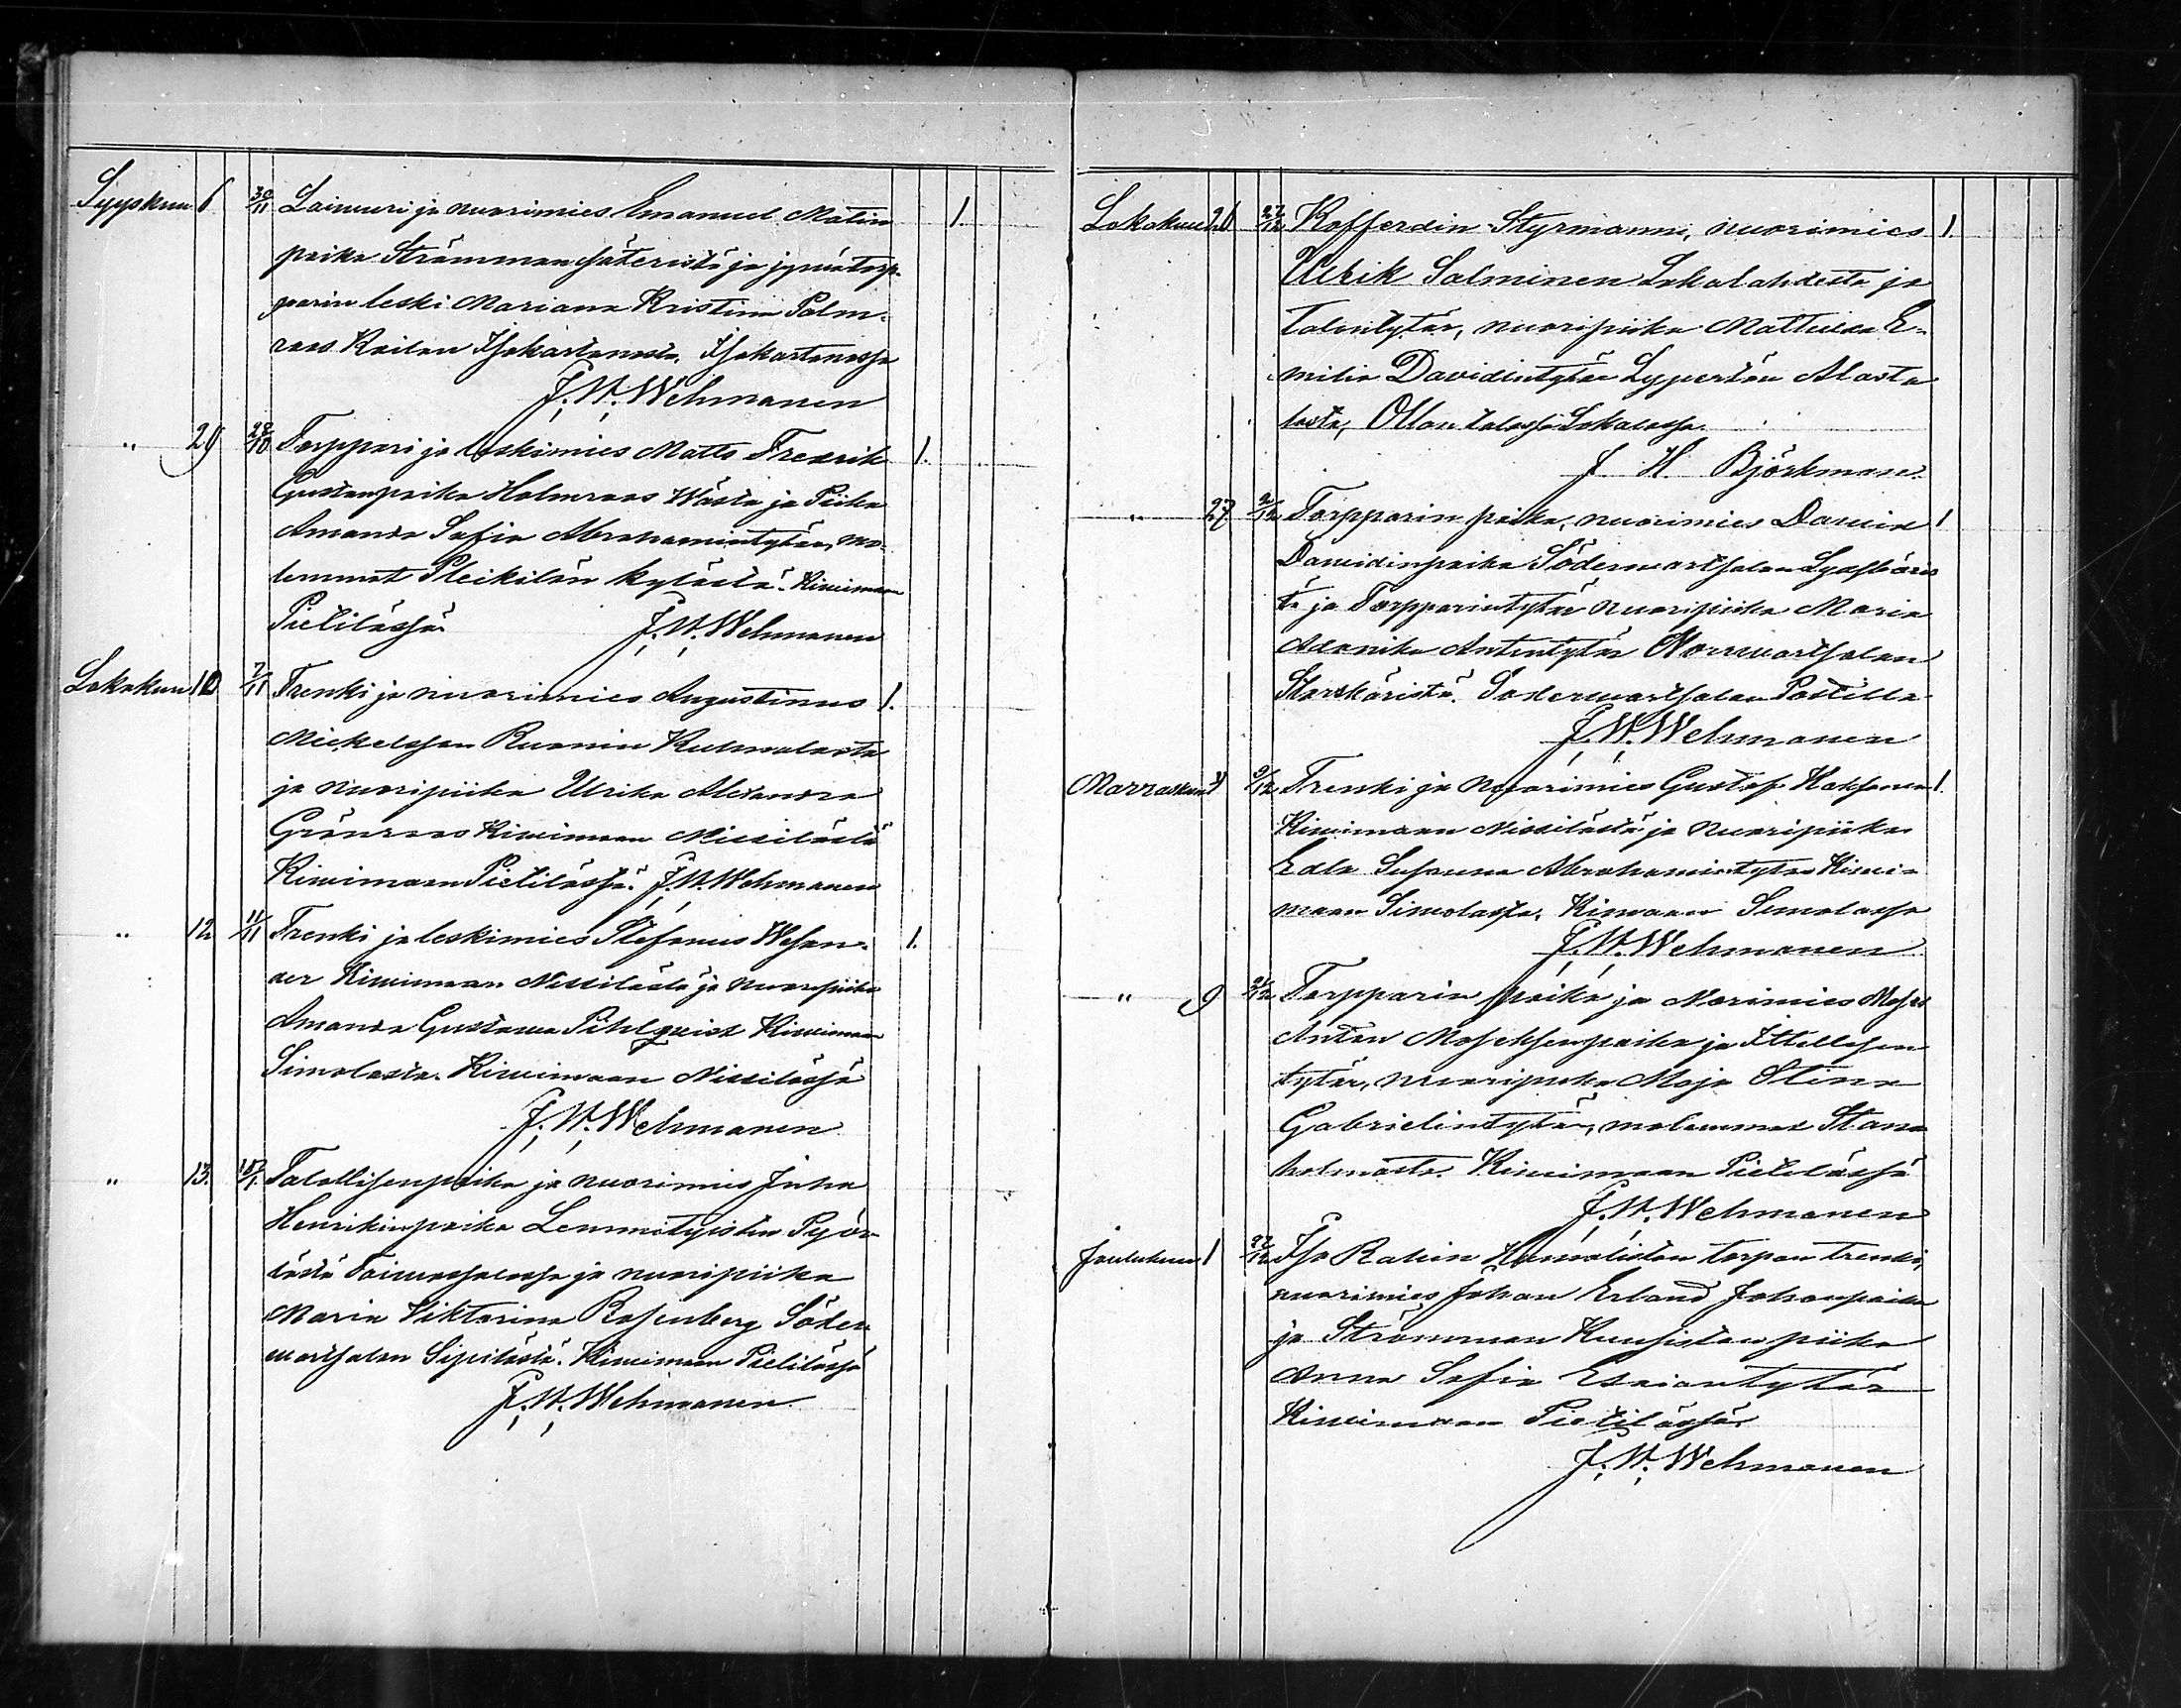 Syyskuu 6 30/11 Lainuri ja nuorimies Emanuel Matin 1.
poika Strömman säteristä ja
leski Mariana Kristina Palm-
roos Kailan Isokartanosta. Isokartanossa
J. W. Wehmanen
" 29 28/10 Torppari ja leskimies Matts Fredrik 1.
Gustavpoika Holmroos ja Piika
Amanda Sofia Abrahamintytär, mo-
lemmat Pleikilän kylästä. Kiwimaan
Pietilässä J. W. Wehmanen
Lokakuu 10 7/11 Trenki ja nuorimies Augustinus 1.
Mickelsson Ruonin Kuhmolasta
ja nuoripiika Ulrika Alexandra
Grönroos Kiwimaan Missilästä
Kiwimaan Pietilässä. J. W. Wehmanen
" 12 11/11 Trenki ja leskimies Stefanus Wesan- 1.
der Kiwimaan Nissilästä ja nuoripiika
Amanda Gustawa Pihlqvist Kiwimaan
Simolasta. Kiwimaan Nissilässä
J. W. Wehmanen
" 13. Talollisenpoika ja nuorimies Juha
Henrikinpoika Lemmityisten Pyör-
tästä Taiwassalossa ja nuoripiika
Maria Viktorina Rosenberg Söder-
wartsalan Sipilästä. Kiwimaan Pietilässä
J. W. Wehmanen
Lokakuu 26 27/12 Kofferdin Styrmanni, nuorimies 1.
Ulrik Salminen Lokalahdesta ja
Talontytär, nuoripiika Mattilda E-
milia Davidintytär Lypertön Alasta
losta, Ollan talossa Lokalassa.
J H Björkman.
" 27. 2/12 Torpparin poika, nuorimies Dawid 1
Dawidinpoika Söderwartsalan
tä ja Torpparintytär nuoripiika Maria
Adamika Antintytär Norrwartsalan
Storskäristä. Söderwartsalan Postilla
J. W. Wehmanen
Marraskuu 9/12 Trenki ja Nuorimies Gustaf Haksonen 1.
Kiwimaan Nissilästä ja nuoripiika
Edla Susanna Abrahamintytär Kiwi-
maan Simolasta. Kiwmaan Simolassa
J. W. Wehmanen
" 9 Torpparin poika ja Norimies
Anton ja Itellisen
tytär, nuoripiika Maja Stina
Gabrielintytär, molemmat
holmasta. Kiwimaan Pietilässä
J. W. Wehmanen
Joulukuu 1 Iso Rahin torpan trenki,
nuorimies Johan Erland Johanpoika
ja Strömman Kuusiston piika
Anna Sofia Esaiantytär
Kiwimaan Pietilässä
J. W. Wehmanen